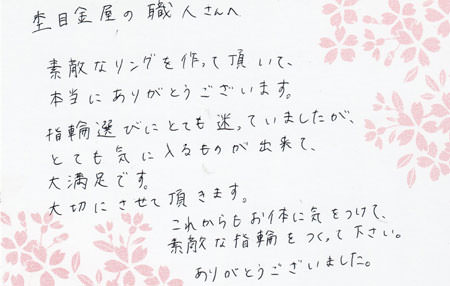 杢目金屋の職人さんへ
素敵なリングを作って頂いて、
本当にありがとうございます。
指輪選びにとても迷っていましたが、
とても気に入るものが出来て、
大満足です。
大切にさせて頂きます。
これからもお体に気をつけて、
素敵な指輪をつくって下さい。
ありがとうございました。